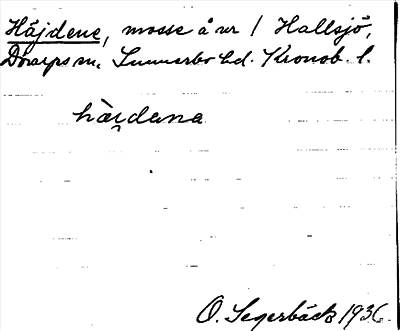 Häjdene, mosse å nr 1 Hallsjö,
Dörarps sn. Sunnerbo hd. Kronob. l.
hài̯dəna
O. Segerbäck 1936.